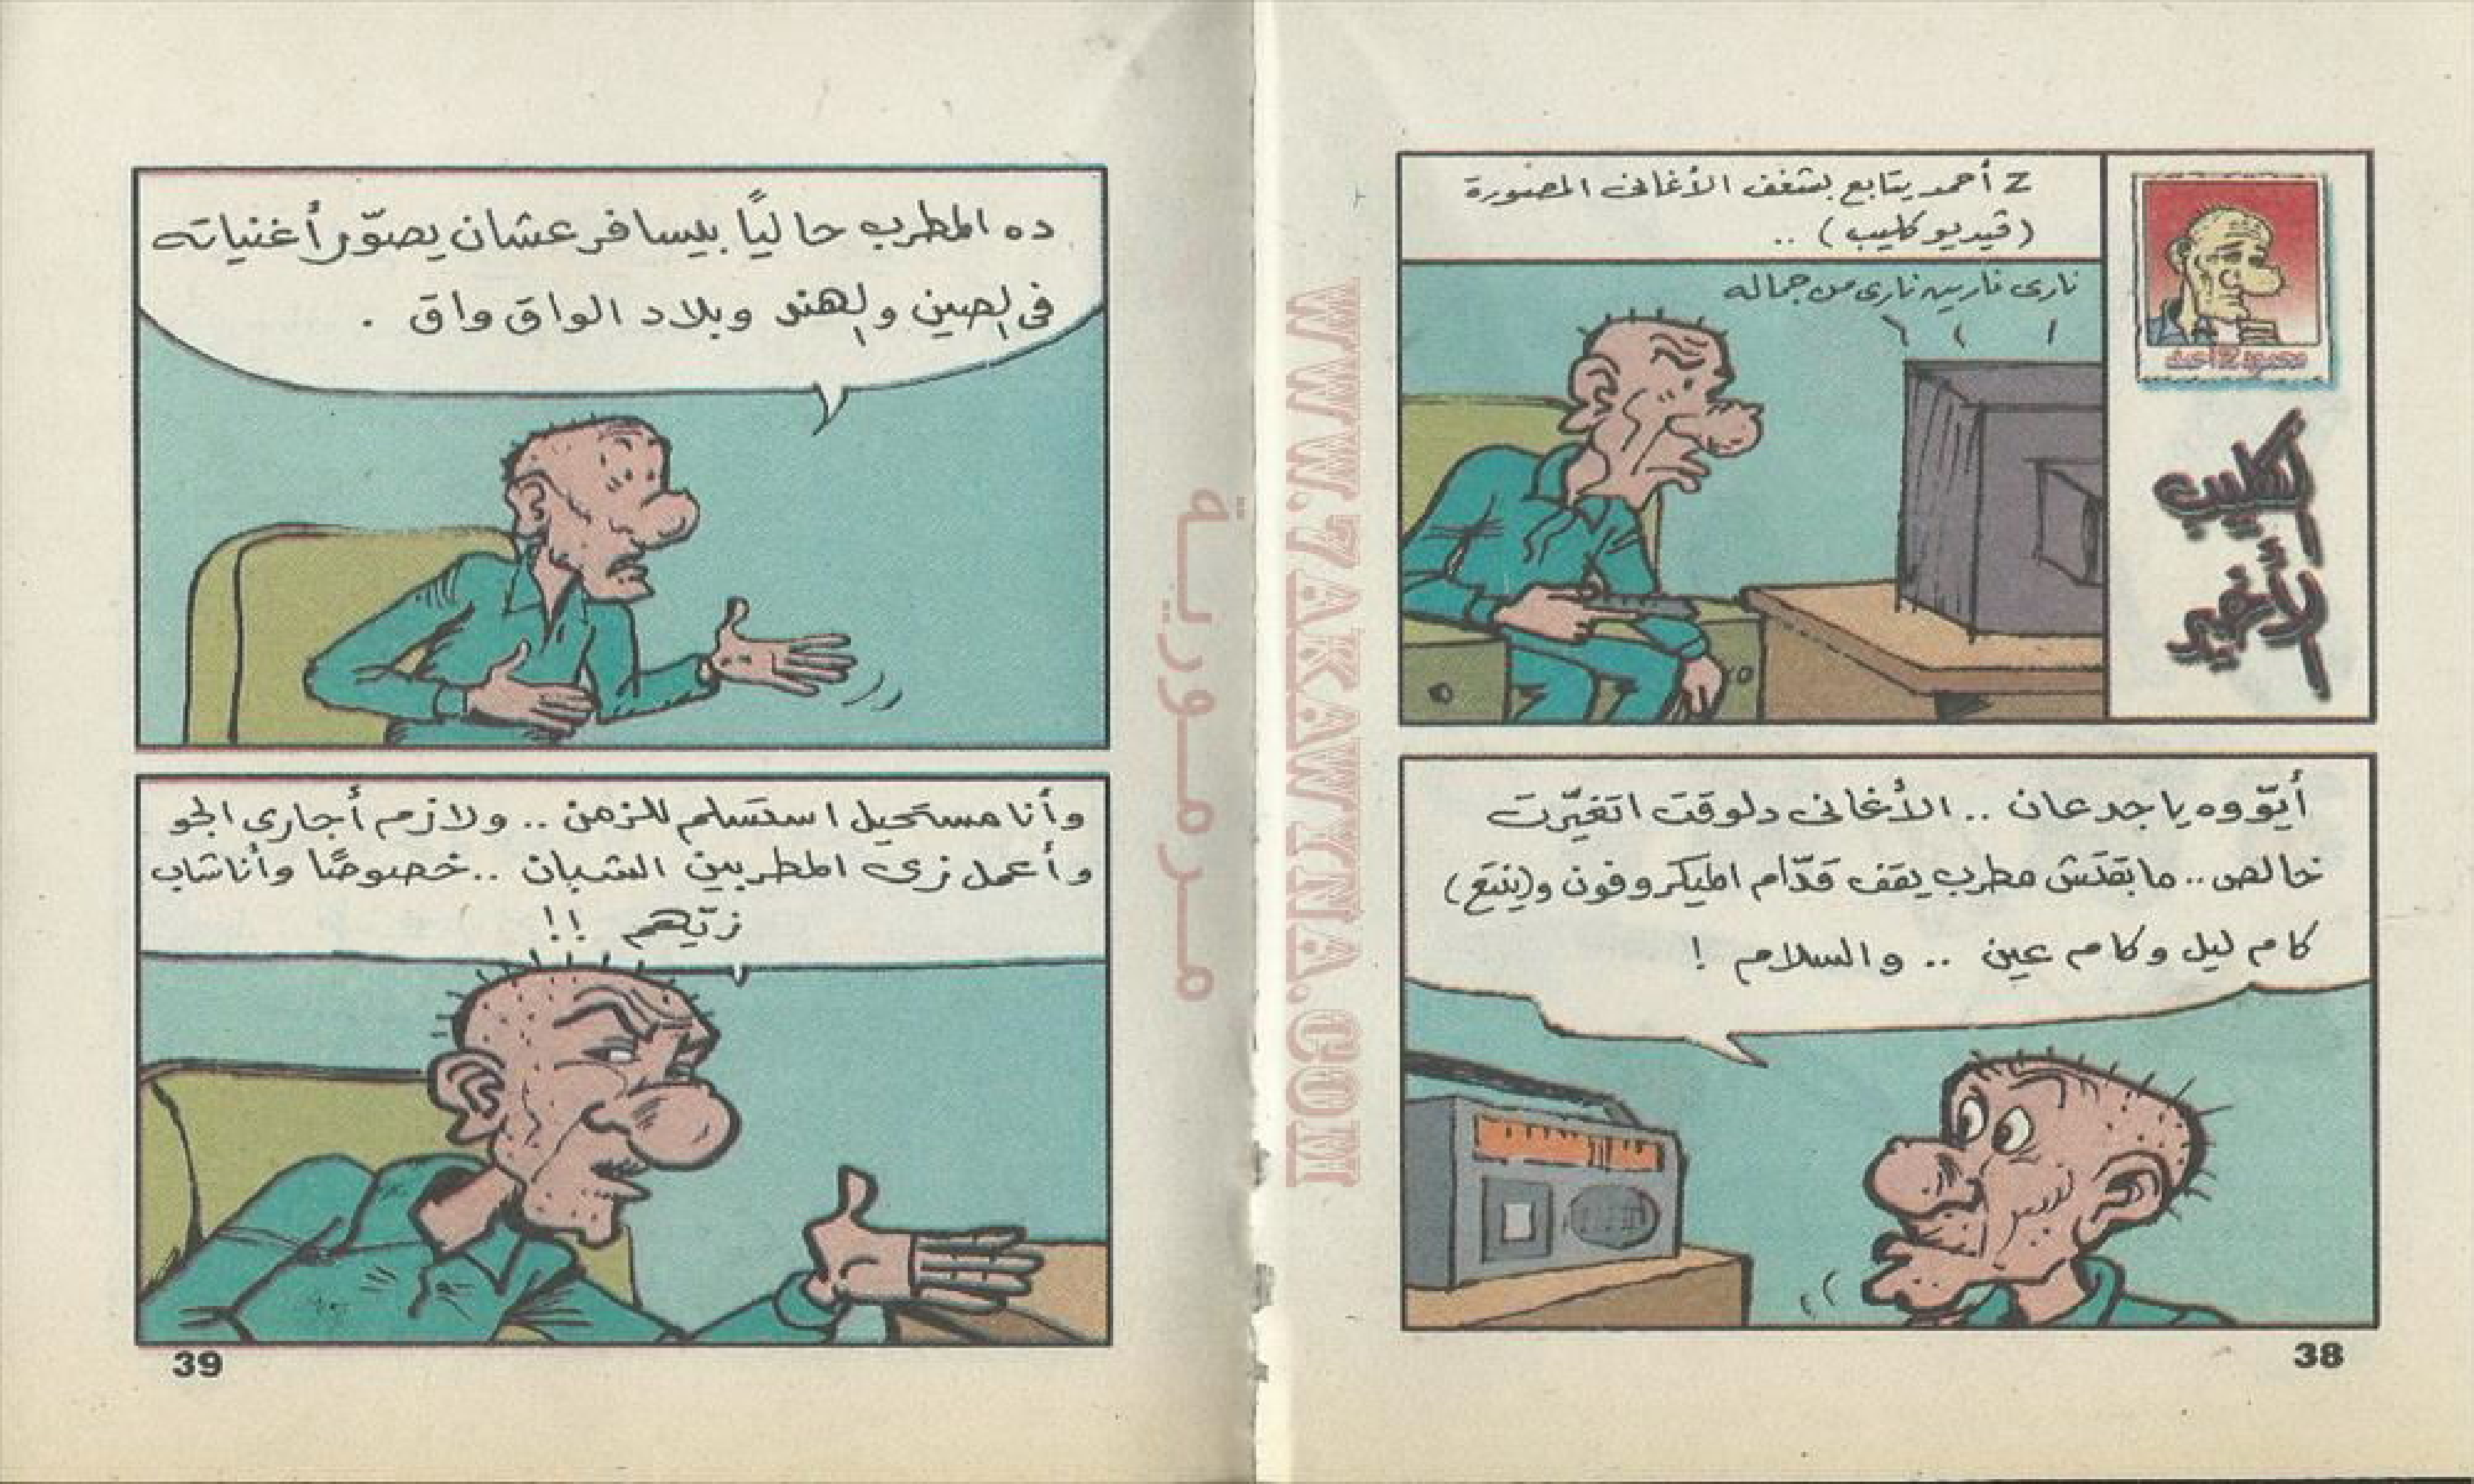 الكليب
الأخير
Z أحمد يتابع بشغف الأغانى المصورة
(ڤيديو كليب) ..
نارى ناريين نارى من جماله
أيّووه يا جدعان .. الأغانى دلوقت اتغيّرت
خالص.. مابقتش مطرب يقف قدّام الميكروفون و(ينبح)
كام ليل وكام عين .. والسلام !
38
ده المطرب حاليًا بيسافر عشان يصوّر أغنياته
فى الصين والهند وبلاد الواق واق .
وأنا مستحيل استسلم للزمن .. ولازم أجارى الجو
وأعمل زى المطربين الشبان ..خصوصًا وأنا شاب
زيّهم !!
39
WWW.7AKAWINA.COM